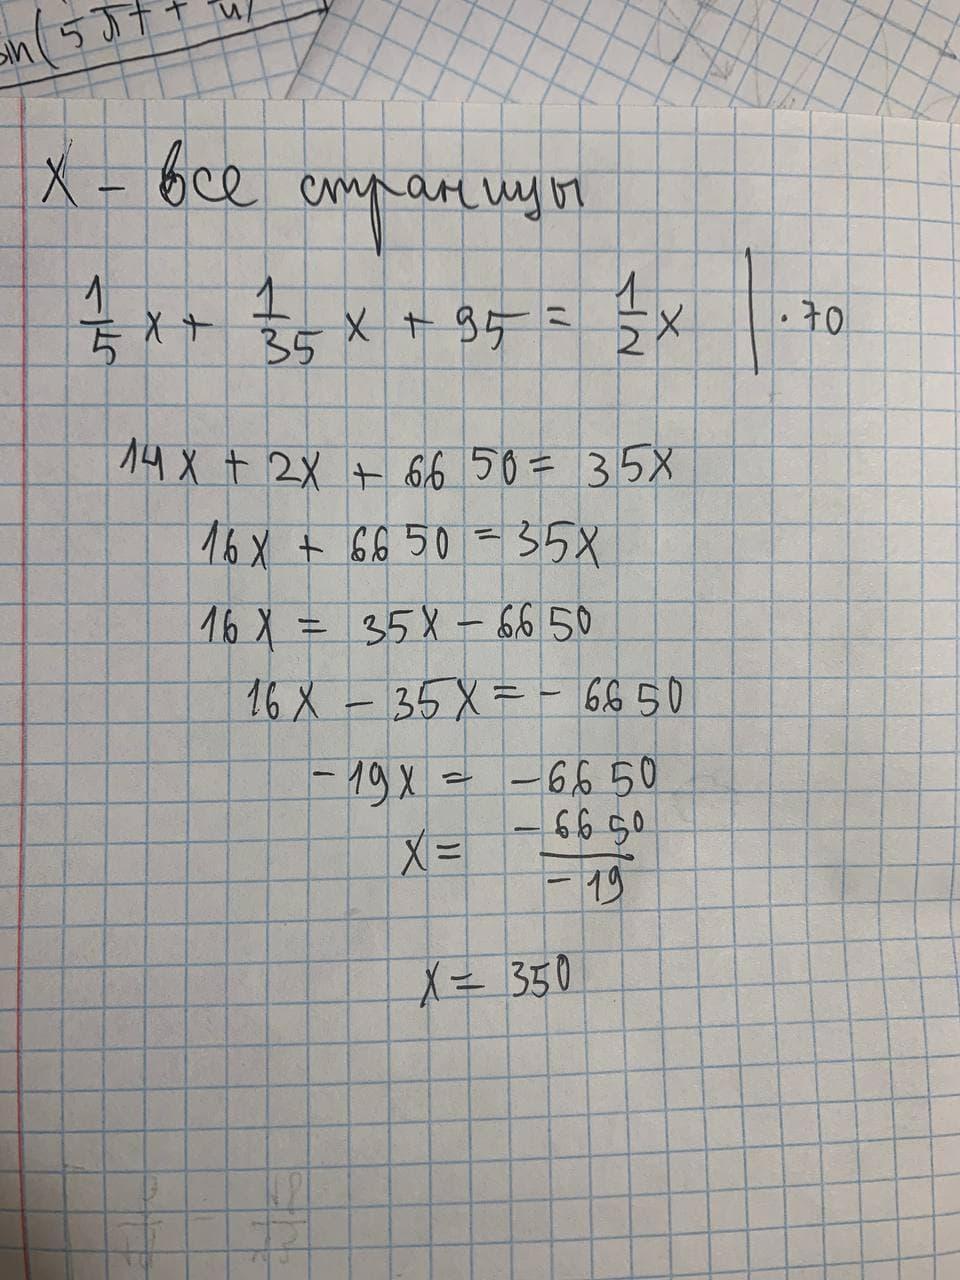 sin(5πt + π)
X – все страницы
1/5 x + 1/35 x + 95 = 1/2 x | · 70
14x + 2x + 6650 = 35x
16x + 6650 = 35x
16x = 35x – 6650
16x – 35x = – 6650
– 19x = – 6650
x = – 6650 / – 19
x = 350